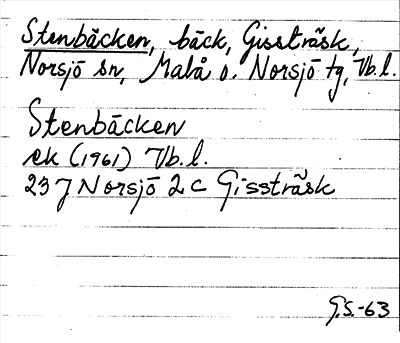 Stenbäcken, bäck, Gissträsk,
Norsjö sn, Malå o. Norsjö tg, Vb.l.
Stenbäcken
ek (1961) Vb.l.
23 J Norsjö 2 c Gissträsk
G.S.-63